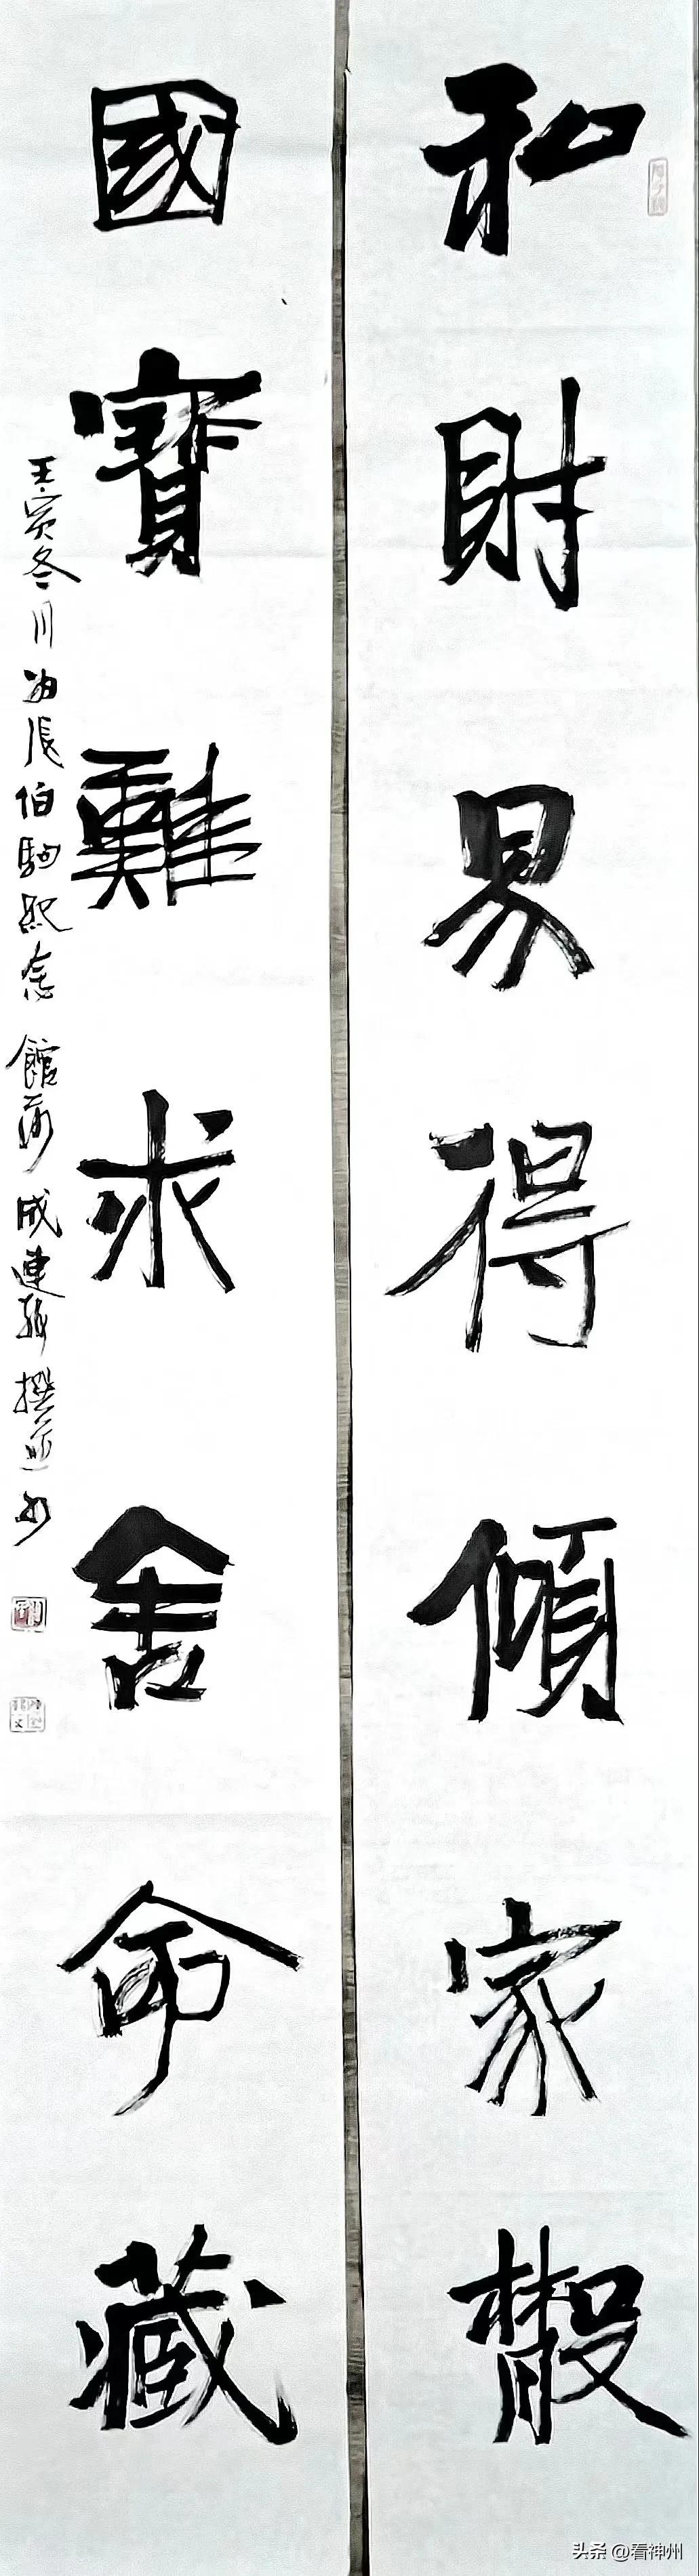 和財易得傾家散
國寶難求舍命藏
壬寅冬月為張伯駒紀念館
成連
撰並書
头条 @看神州